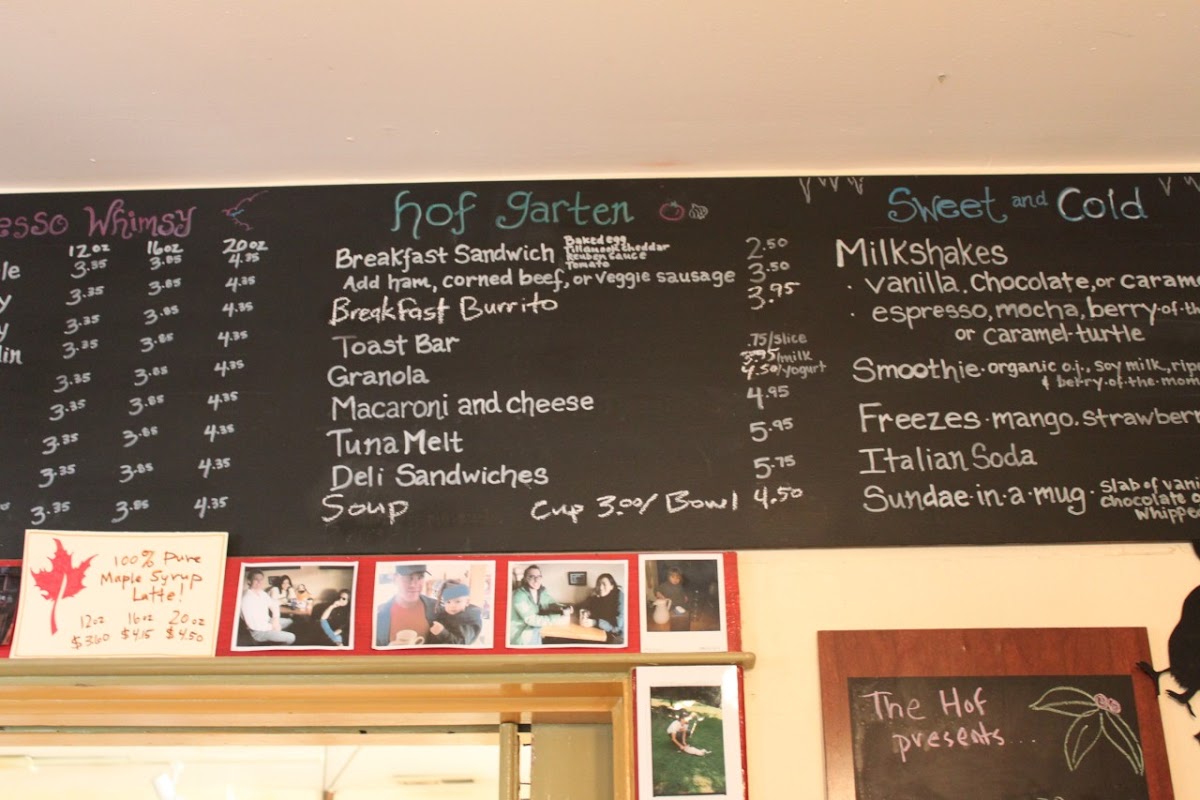 Whimsy
12oz 16oz 20oz
3.35 3.85 4.35
3.35 3.85 4.35
3.35 3.85 4.35
3.35 3.85 4.35
3.35 3.85 4.35
3.35 3.85 4.35
3.35 3.85 4.35
3.35 3.85 4.35
3.35 3.85 4.35
hof garten
Breakfast Sandwich Baked egg 2.50
Tillamook cheddar
Reuben sauce
Tomato
Add ham, corned beef, or veggie sausage 3.50
Breakfast Burrito 3.95
Toast Bar .75/slice
Granola 3.95/milk
4.50/yogurt
Macaroni and cheese 4.95
Tuna Melt 5.95
Deli Sandwiches 5.75
Soup Cup 3.00/ Bowl 4.50
Sweet and Cold
Milkshakes
· vanilla, chocolate, or
· espresso, mocha, berry-of-
or caramel-turtle
Smoothie · organic o.j., soy milk,
& berry-of-the-
Freezes · mango,
Italian Soda
Sundae-in-a-mug · Slab of
chocolate
100% Pure
Maple Syrup
Latte!
12oz 16oz 20oz
$3.60 $4.15 $4.50
The Hof
presents...